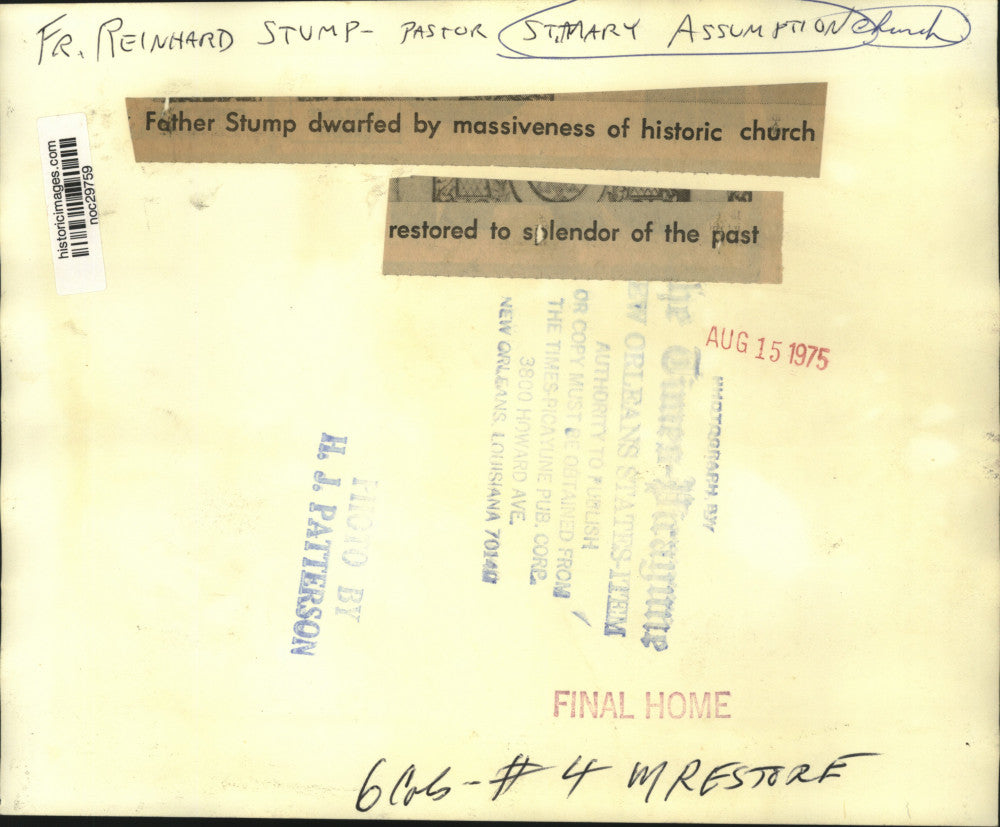 FR. REINHARD STUMP- PASTOR ST. MARY ASSUMPTION church
Father Stump dwarfed by massiveness of historic church
restored to splendor of the past
historicimages.com
noc29759
AUG 15 1975
PHOTOGRAPH BY
The Times-Picayune
NEW ORLEANS STATES-ITEM
AUTHORITY TO PUBLISH
OR COPY MUST BE OBTAINED FROM
THE TIMES-PICAYUNE PUB. CORP.
3800 HOWARD AVE.
NEW ORLEANS, LOUISIANA 70140
PHOTO BY
H. J. PATTERSON
FINAL HOME
6 Cols - # 4 M RESTORE